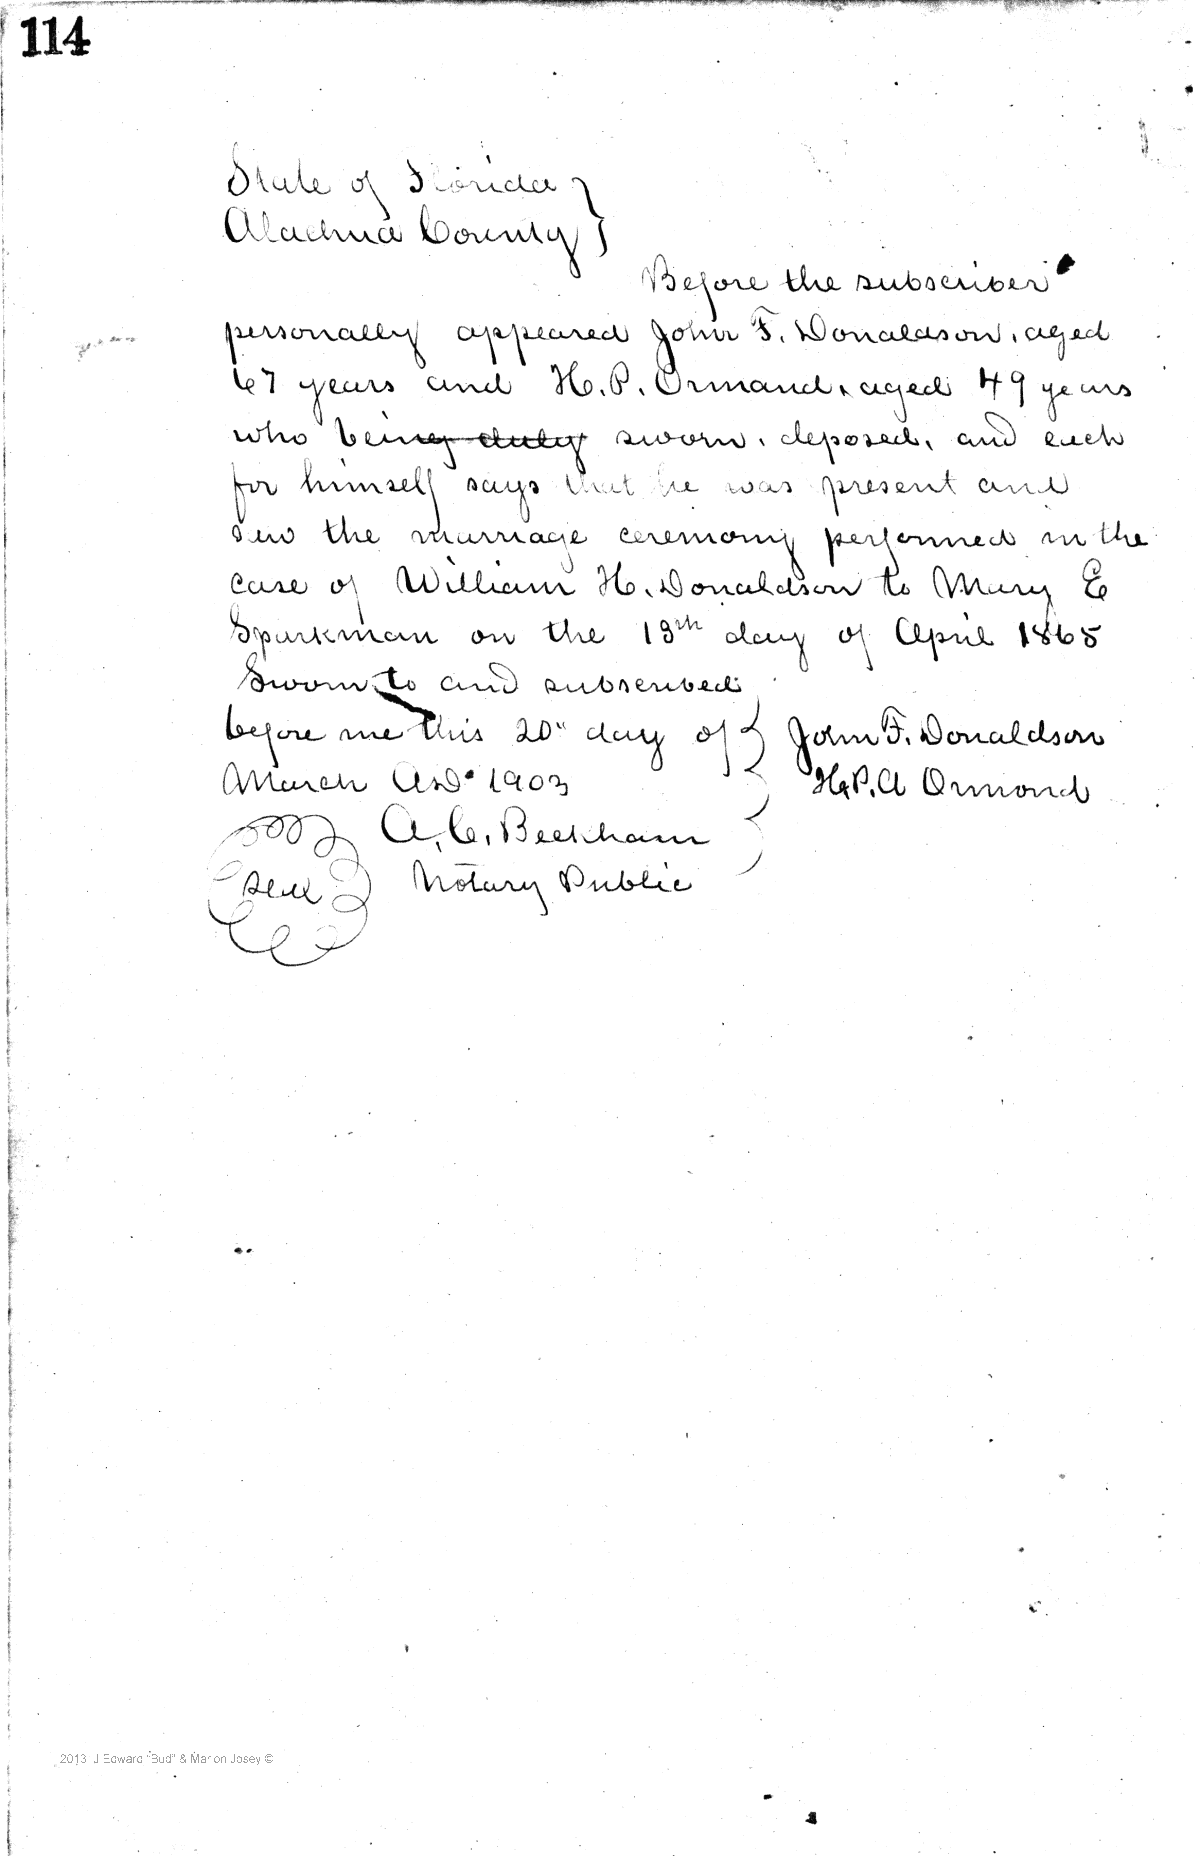 114
State of Florida }
Alachua County }
Before the subscriber
personally appeared John F. Donaldson, aged
67 years and H. P. Ormand, aged 49 years
who being duly sworn, deposed, and each
for himself says that he was present and
saw the marriage ceremony performed in the
case of William H. Donaldson to Mary E
Sparkman on the 13th day of April 1865
Sworn to and subscribed
before me this 20" day of } John F. Donaldson
March A.D. 1903 } H.P.A Ormond
A. C. Beckham }
seal Notary Public
2013 J Edward "Bud" & Marion Josey ©